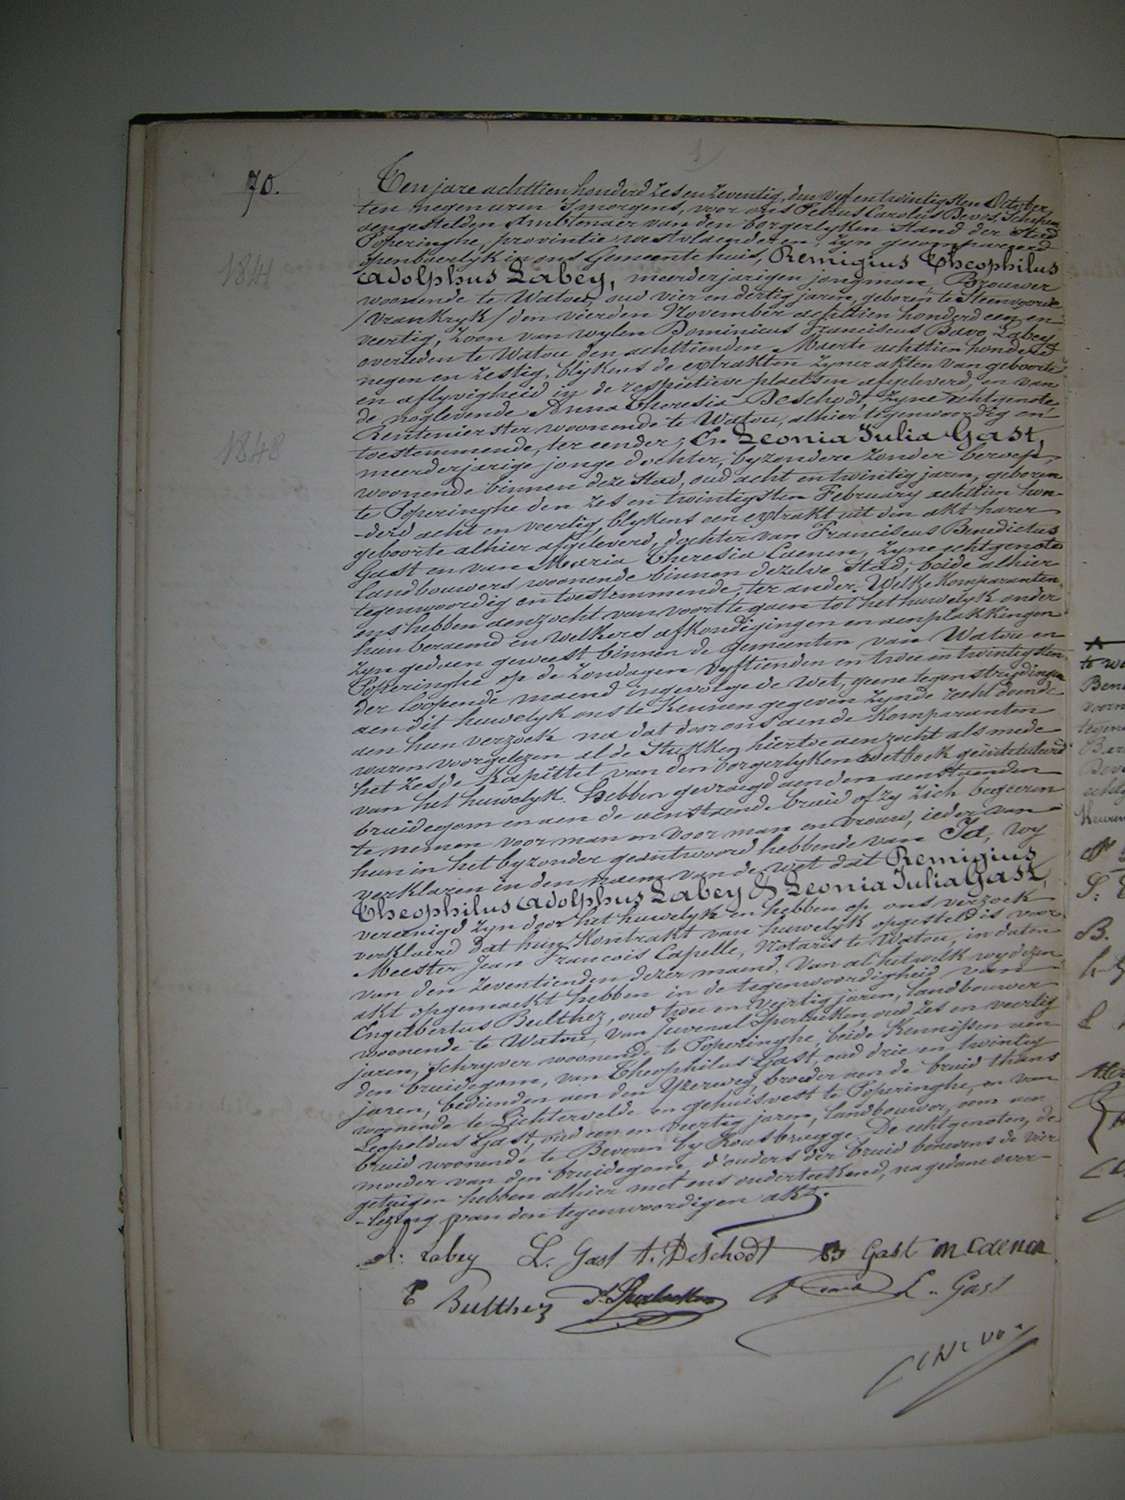 70.
Ten jare achttien honderd zes en zeventig, den vyf en twintigsten October
ten negen uren 's morgens, voor ons Petrus Carolus Schepen
aengestelden Ambtenaer van den borgerlyken Stand der Stad
Poperinghe, provintie westvlaenderen, zyn gecompareerd
openbaerlyk in ons Gemeentehuis, Remigius Theophilus
1841
Adolphus Labey, meerderjarigen jongman, Brouwer
woonende te Watou, oud vier en dertig jaren, geboren te Steenvoorde
/Vrankryk/ den vierden November achttien honderd een en
veertig, zoon van wylen Dominicus Franciscus Bavo Labey
overleden te Watou den achttienden Maerte achttien honderd
negen en zestig, blykens de extrakten zyner akten van geboorte
en aflyvigheid in de respectieve plaetsen afgeleverd, en van
de noglevende Anna Theresia Deschodt, zyne echtgenote,
Rentenierster woonende te Watou, alhier tegenwoordig en
toestemmende, ter eender; En Leonia Julia Gast,
1848
meerderjarige jonge dochter, byzondere zonder beroep,
woonende binnen deze stad, oud acht en twintig jaren, geboren
te Poperinghe den zes en twintigsten February achttien hon-
-derd acht en veertig, blykens een extrakt uit den akt harer
geboorte alhier afgeleverd, dochter van Franciscus Benedictus
Gast en van Maria Theresia Caenen, zyne echtgenote
Landbouwers woonende binnen dezelve Stad, beide alhier
tegenwoordig en toestemmende, ter ander. Welke Komparanten
ons hebben aenzocht van voort te gaen tot het huwelyk onder
hun beraemd en welkers afkondigingen en aenplakkingen
zyn gedaen geweest binnen de gemeenten van Watou en
Poperinghe op de zondagen vyftienden en twee en twintigsten
der loopende maend ingevolge de wet, geene tegenstrydingen
aen dit huwelyk ons te kennen gegeven zynde recht doende
aen hun verzoek na dat door ons aen de Komparanten
waren voorgelezen al de Stukken hiertoe aenzocht als mede
het zesde Kapittel van den borgerlyken Wetboek geïntituleerd
van het huwelyk. Hebben gevraegd aen den aenstaenden
bruidegom en aen de aenstaende bruid of zy zich begeven
te nemen voor man en voor man en vrouw, ieder van
hun in het byzonder geantwoord hebbende van Ja, wy
verklaren in den naem van de wet dat Remigius
Theophilus Adolphus Labey & Leonia Julia Gast,
vereenigd zyn door het huwelyk en hebben op ons verzoek
verklaerd dat hun Kontrakt van huwelyk opgesteld is voor
Meester Jean Francois Capelle, Notaris te Watou, in daten
van den zeventienden dezer maend. Van al hetwelk wy dezen
akt opgemaekt hebben in de tegenwoordigheid van
Engelbertus Bulthez, oud twee en veertig jaren, landbouwer
woonende te Watou, van Juvenal oud zes en veertig
jaren, Schryver woonende te Poperinghe, beide Kennissen aen
den bruidegom, van Theophilus Gast, oud drie en twintig
jaren, bedienden aen den Yzerweg, broeder aen de bruid thans
woonende te Lichtervelde en gehuisvest te Poperinghe, en van
Leopoldus Gast, oud een en veertig jaren, landbouwer, oom aen
bruid woonende te Beveren by Rousbrugge. De echtgenoten, de
moeder van den bruidegom, d'ouders der bruid benevens de vier
getuigen hebben alhier met ons onderteekend, na gedane over-
-lezing van den tegenwoordigen akt.
A. Labey L. Gast A. Deschodt B Gast M Caenen
E Bulthez L. Gast